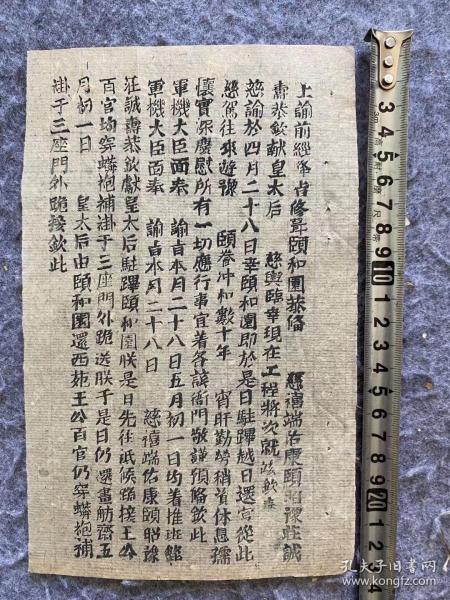 上諭前經降旨修葺頤和園恭備　慈禧端佑康頤昭豫莊誠
壽恭欽獻皇太后　慈輿臨幸現在工程將次就竣欽奉
慈諭於四月二十八日幸頤和園即於是日駐蹕越日還宮從此
慈駕往來遊豫　頤養冲和數十年　宵旰勤勞稍資休息孺
懷實深慶慰所有一切應行事宜着各該衙門敬謹預備欽此
軍機大臣面奉　諭旨本月二十八日五月初一日均着推班欽此
軍機大臣面奉　諭旨本月二十八日　慈禧端佑康頤昭豫
莊誠壽恭欽獻皇太后駐蹕頤和園朕是日先往祗候跪接王公
百官均穿蟒袍補掛于三座門外跪送朕于是日仍還畫舫齋五
月初一日　皇太后由頤和園還西苑王公百官仍穿蟒袍補
掛于三座門外跪接欽此
孔夫子旧书网